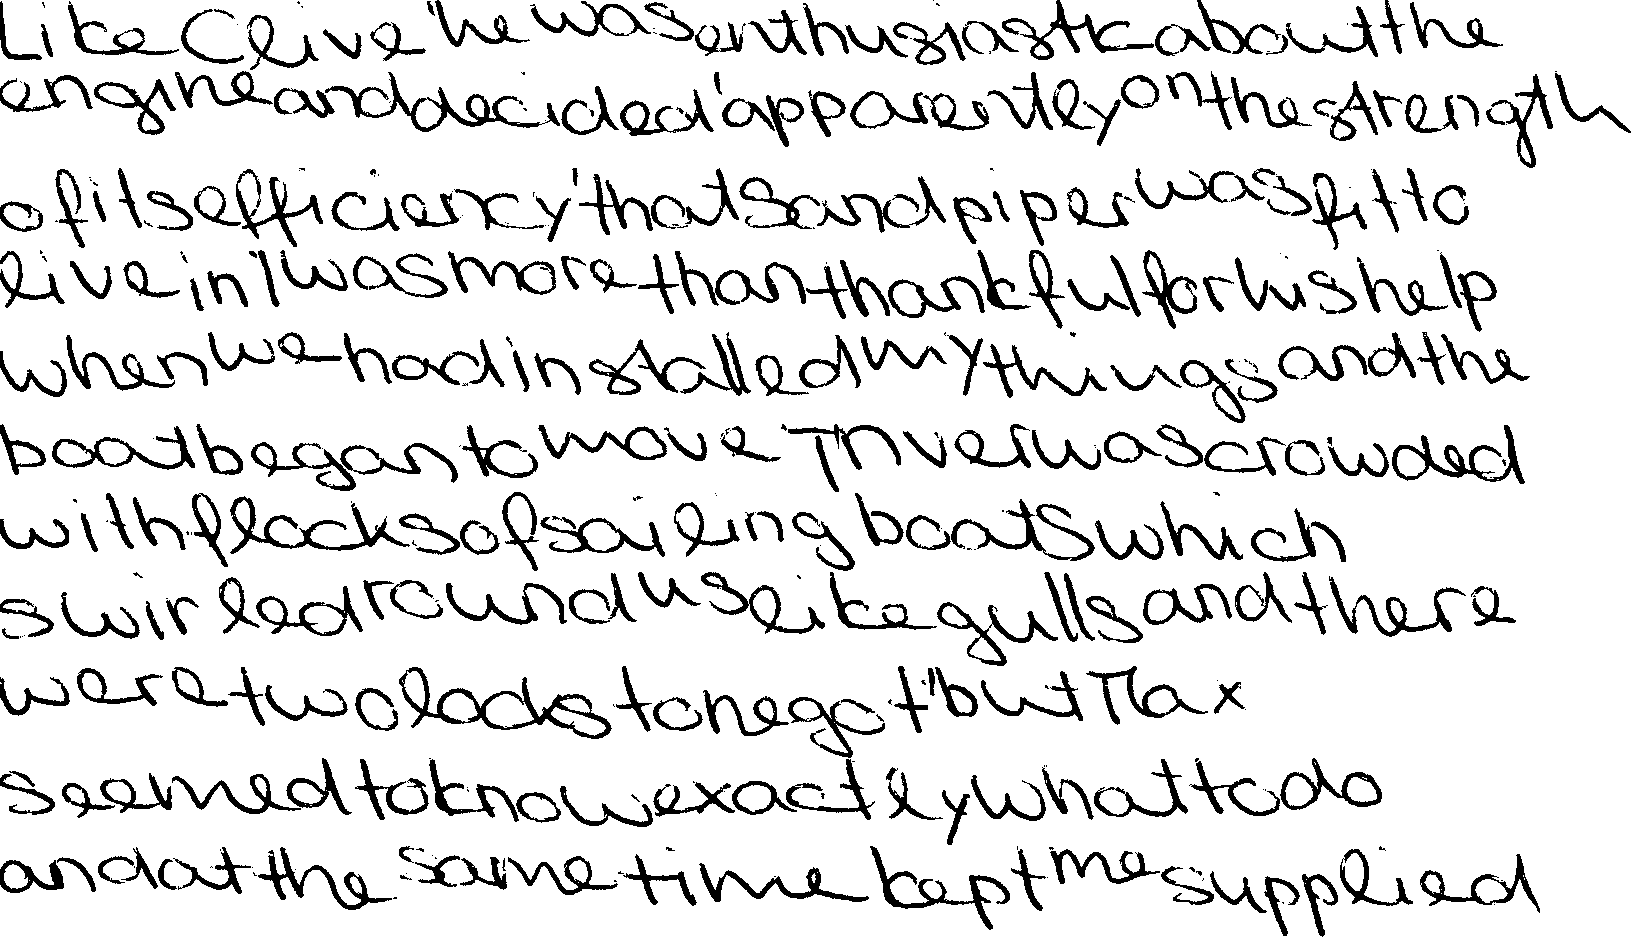 Like Clive 'he was enthusiastic about the
engine and decided 'apparently on the strength
of its efficiency 'that Sandpiper was fit to
live in 'I was more than thankful for his help
when we had installed my things and the
boat began to move river was crowded
with flocks of sailing boats which
swirled round us like gulls and there
were two locks to negot" but Max
seemed to know exactly what to do
and at the same time kept me supplied